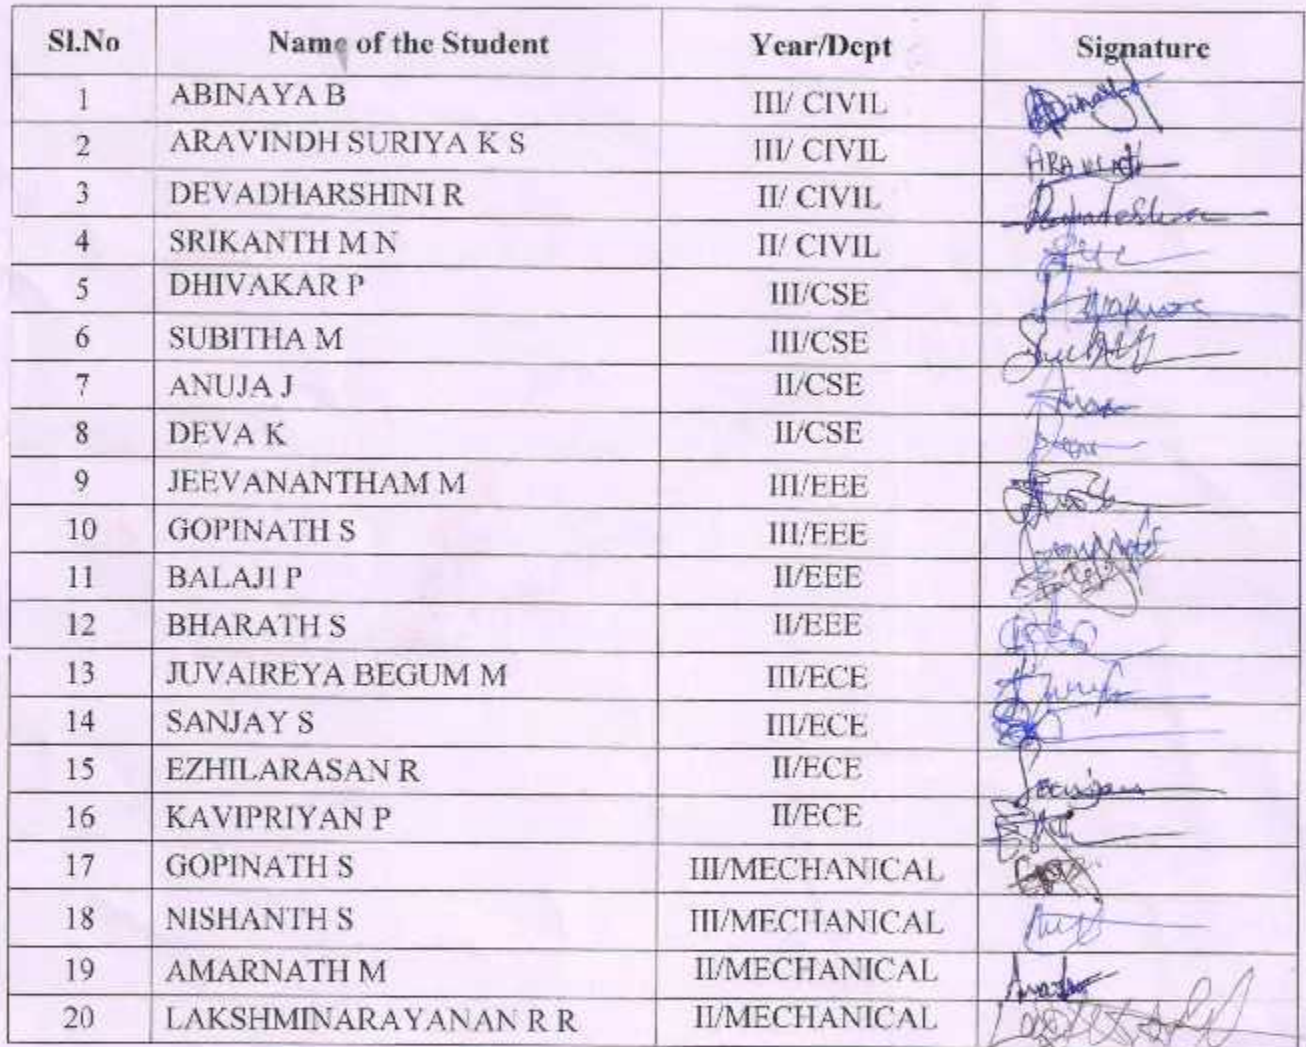 Sl.No Name of the Student Year/Dept Signature
1 ABINAYA B III/ CIVIL Abinaya
2 ARAVINDH SURIYA K S III/ CIVIL
3 DEVADHARSHINI R II/ CIVIL
4 SRIKANTH M N II/ CIVIL
5 DHIVAKAR P III/CSE
6 SUBITHA M III/CSE
7 ANUJA J II/CSE
8 DEVA K II/CSE
9 JEEVANANTHAM M III/EEE
10 GOPINATH S III/EEE
11 BALAJI P II/EEE
12 BHARATH S II/EEE
13 JUVAIREYA BEGUM M III/ECE
14 SANJAY S III/ECE
15 EZHILARASAN R II/ECE
16 KAVIPRIYAN P II/ECE
17 GOPINATH S III/MECHANICAL
18 NISHANTH S III/MECHANICAL
19 AMARNATH M II/MECHANICAL
20 LAKSHMINARAYANAN R R II/MECHANICAL